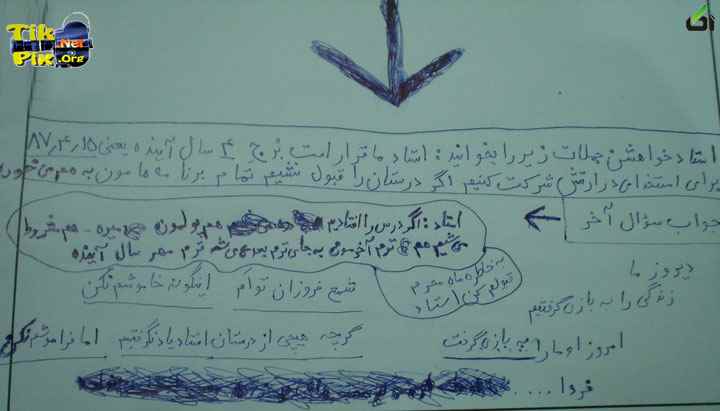 Tik
.Net
Pik.org
استاد خواهشن جملات زیر را بخوانید: استاد ما قرار است برج ۴ سال آینده یعنی ۸۷/۴/۱۵
برای استخدامی در ارتش شرکت کنیم اگر درستان را قبول نشیم تمام برنامه هامون به هم می خوره
جواب سؤال آخر
استاد: اگر درس را افتادم هم پولمون میره - هم مشروط
می شیم هم ترم آخرمون به جای ترم بهمن می شه ترم مهر سال آینده
به خاطر ماه محرم
قبولم کن استاد
دیروز ما
زندگی را به بازی گرفتیم
شمع فروزان توأم اینگونه خاموشم نکن
امروز او ما را به بازی گرفت
گرچه هیچی از درستان استاد یاد نگرفتیم اما فراموشم نکن
فردا ....